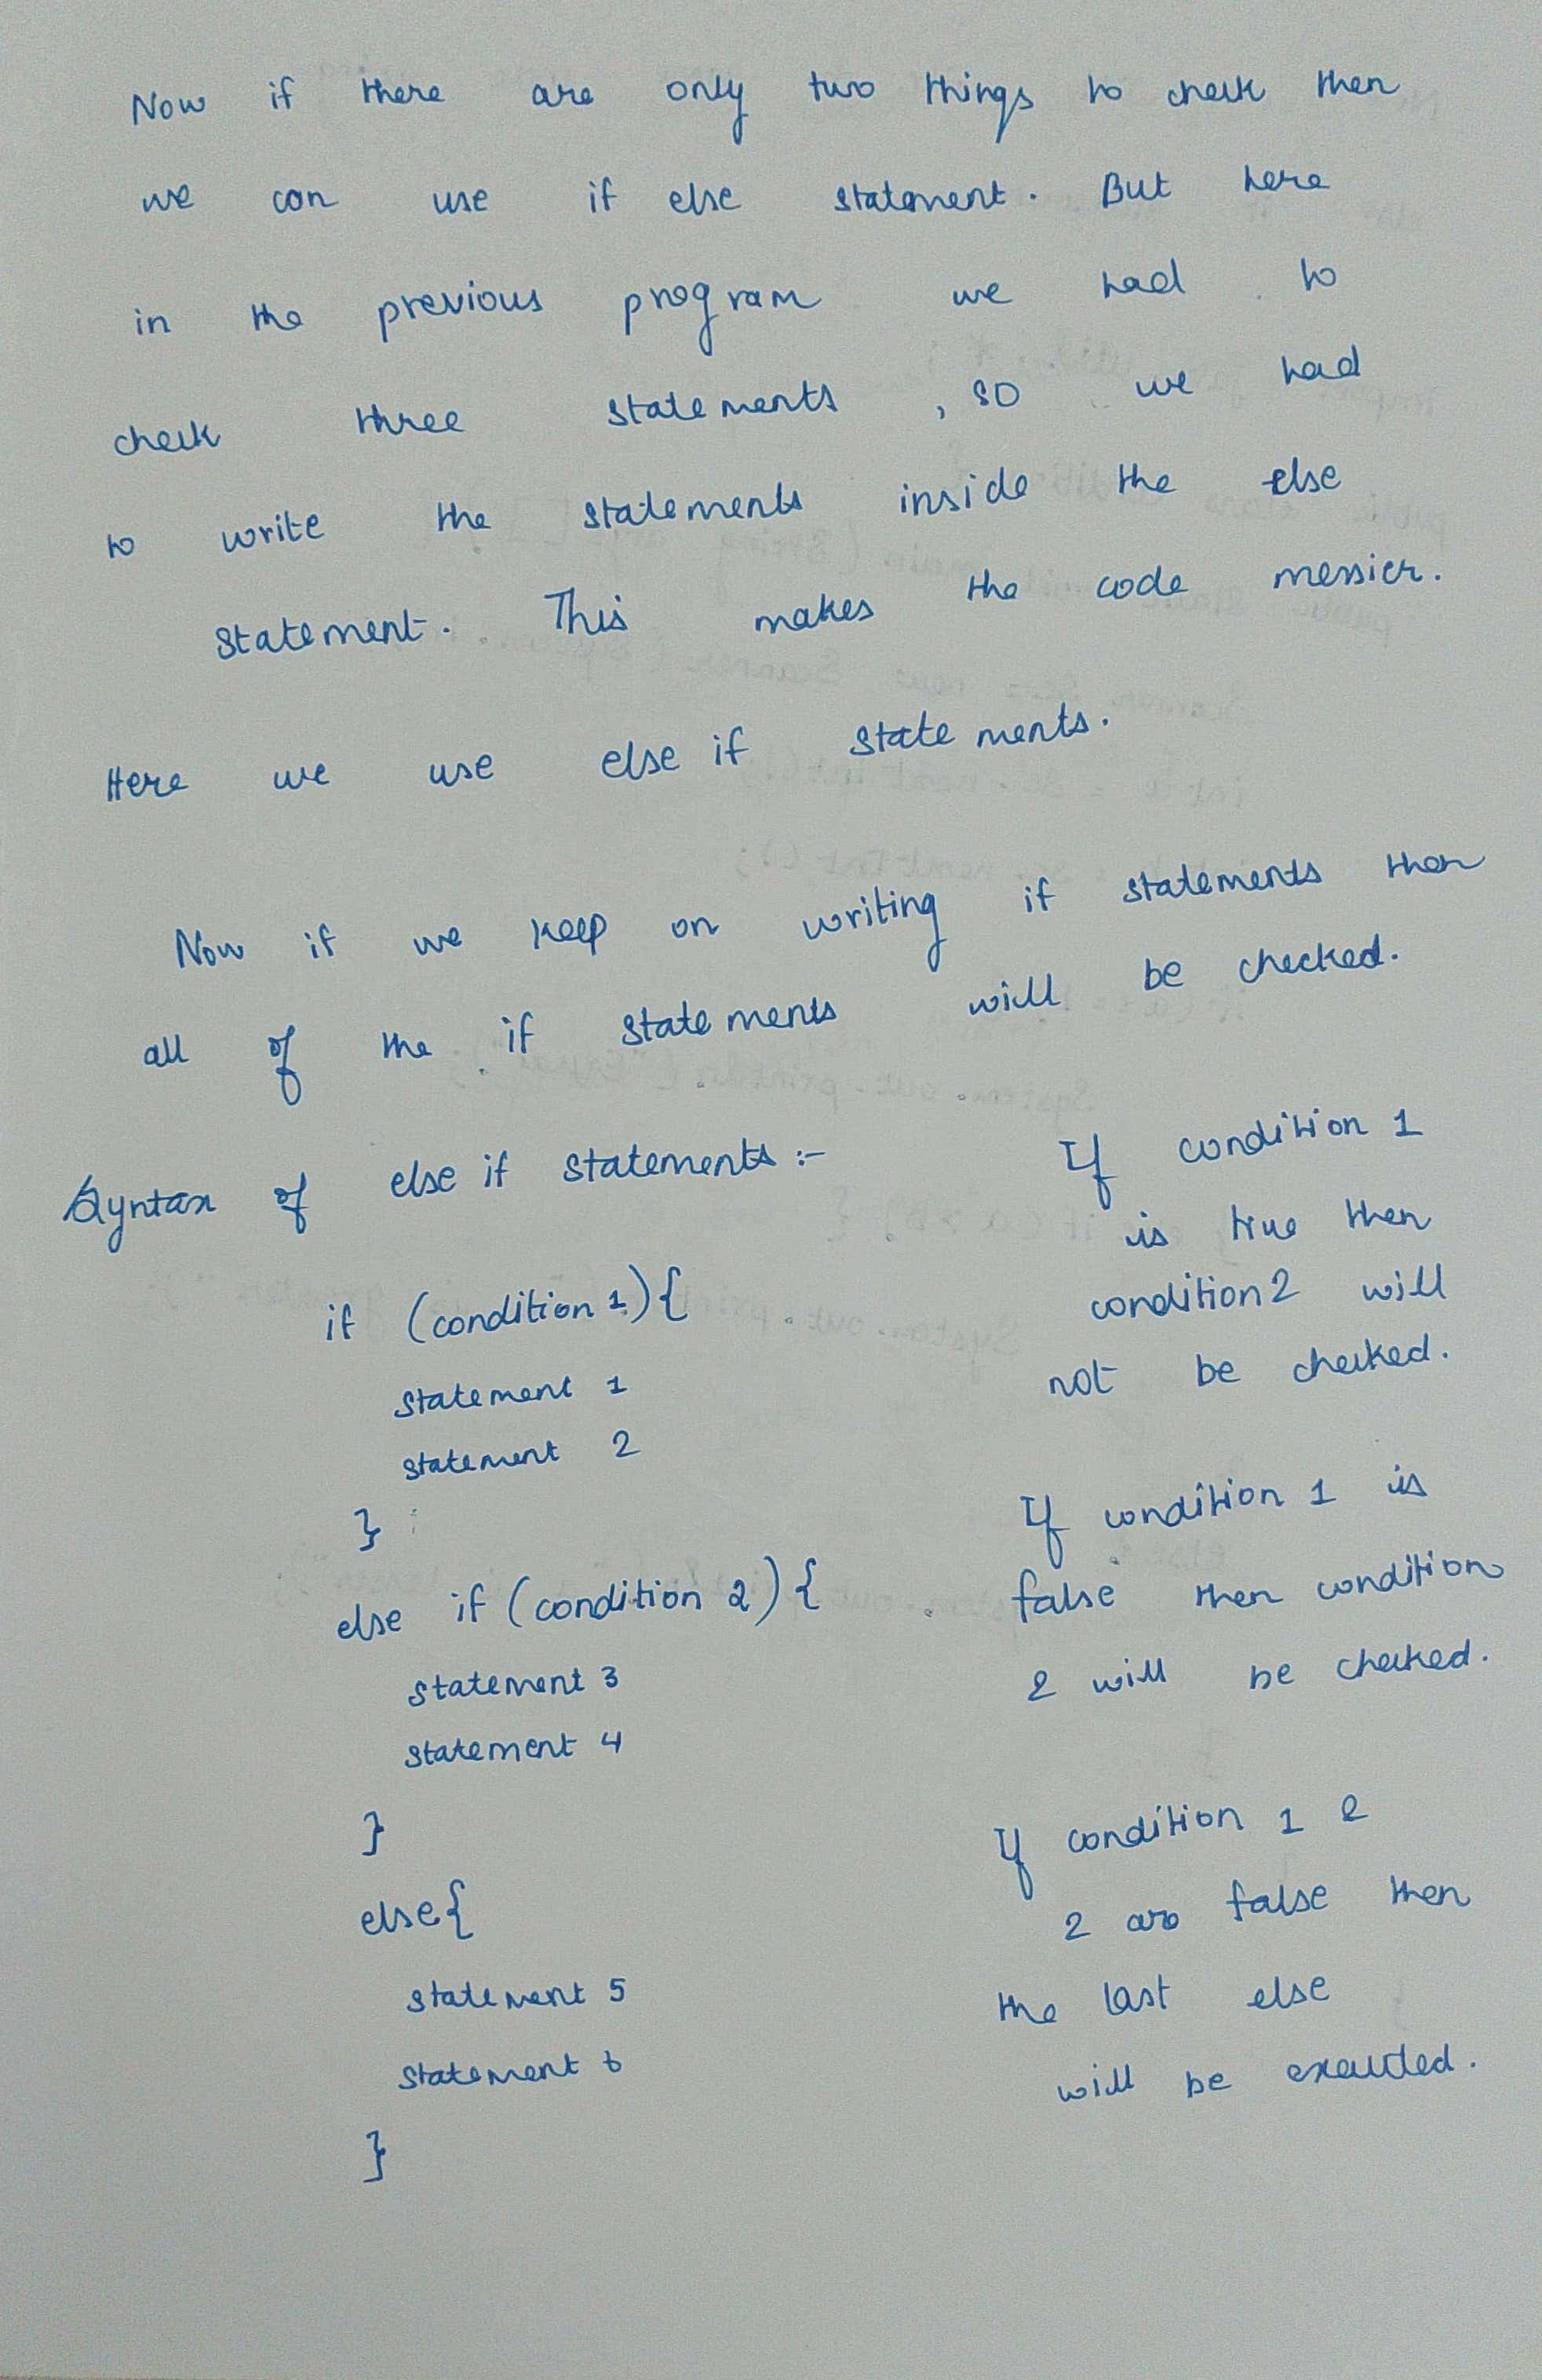 Now if there are only two things to check then
we can use if else statement. But here
in the previous program we had to
check three statements, so we had
to write the statements inside the else
statement. This makes the code messier.
Here we use else if statements.
Now if we keep on writing if statements then
all of the if statements will be checked.
Syntax of else if statements :-
if (condition 1) {
statement 1
statement 2
}
else if (condition 2) {
statement 3
statement 4
}
else {
statement 5
statement 6
}
If condition 1
is true then
condition 2 will
not be checked.
If condition 1 is
false then condition
2 will be checked.
If condition 1 &
2 are false then
the last else
will be executed.